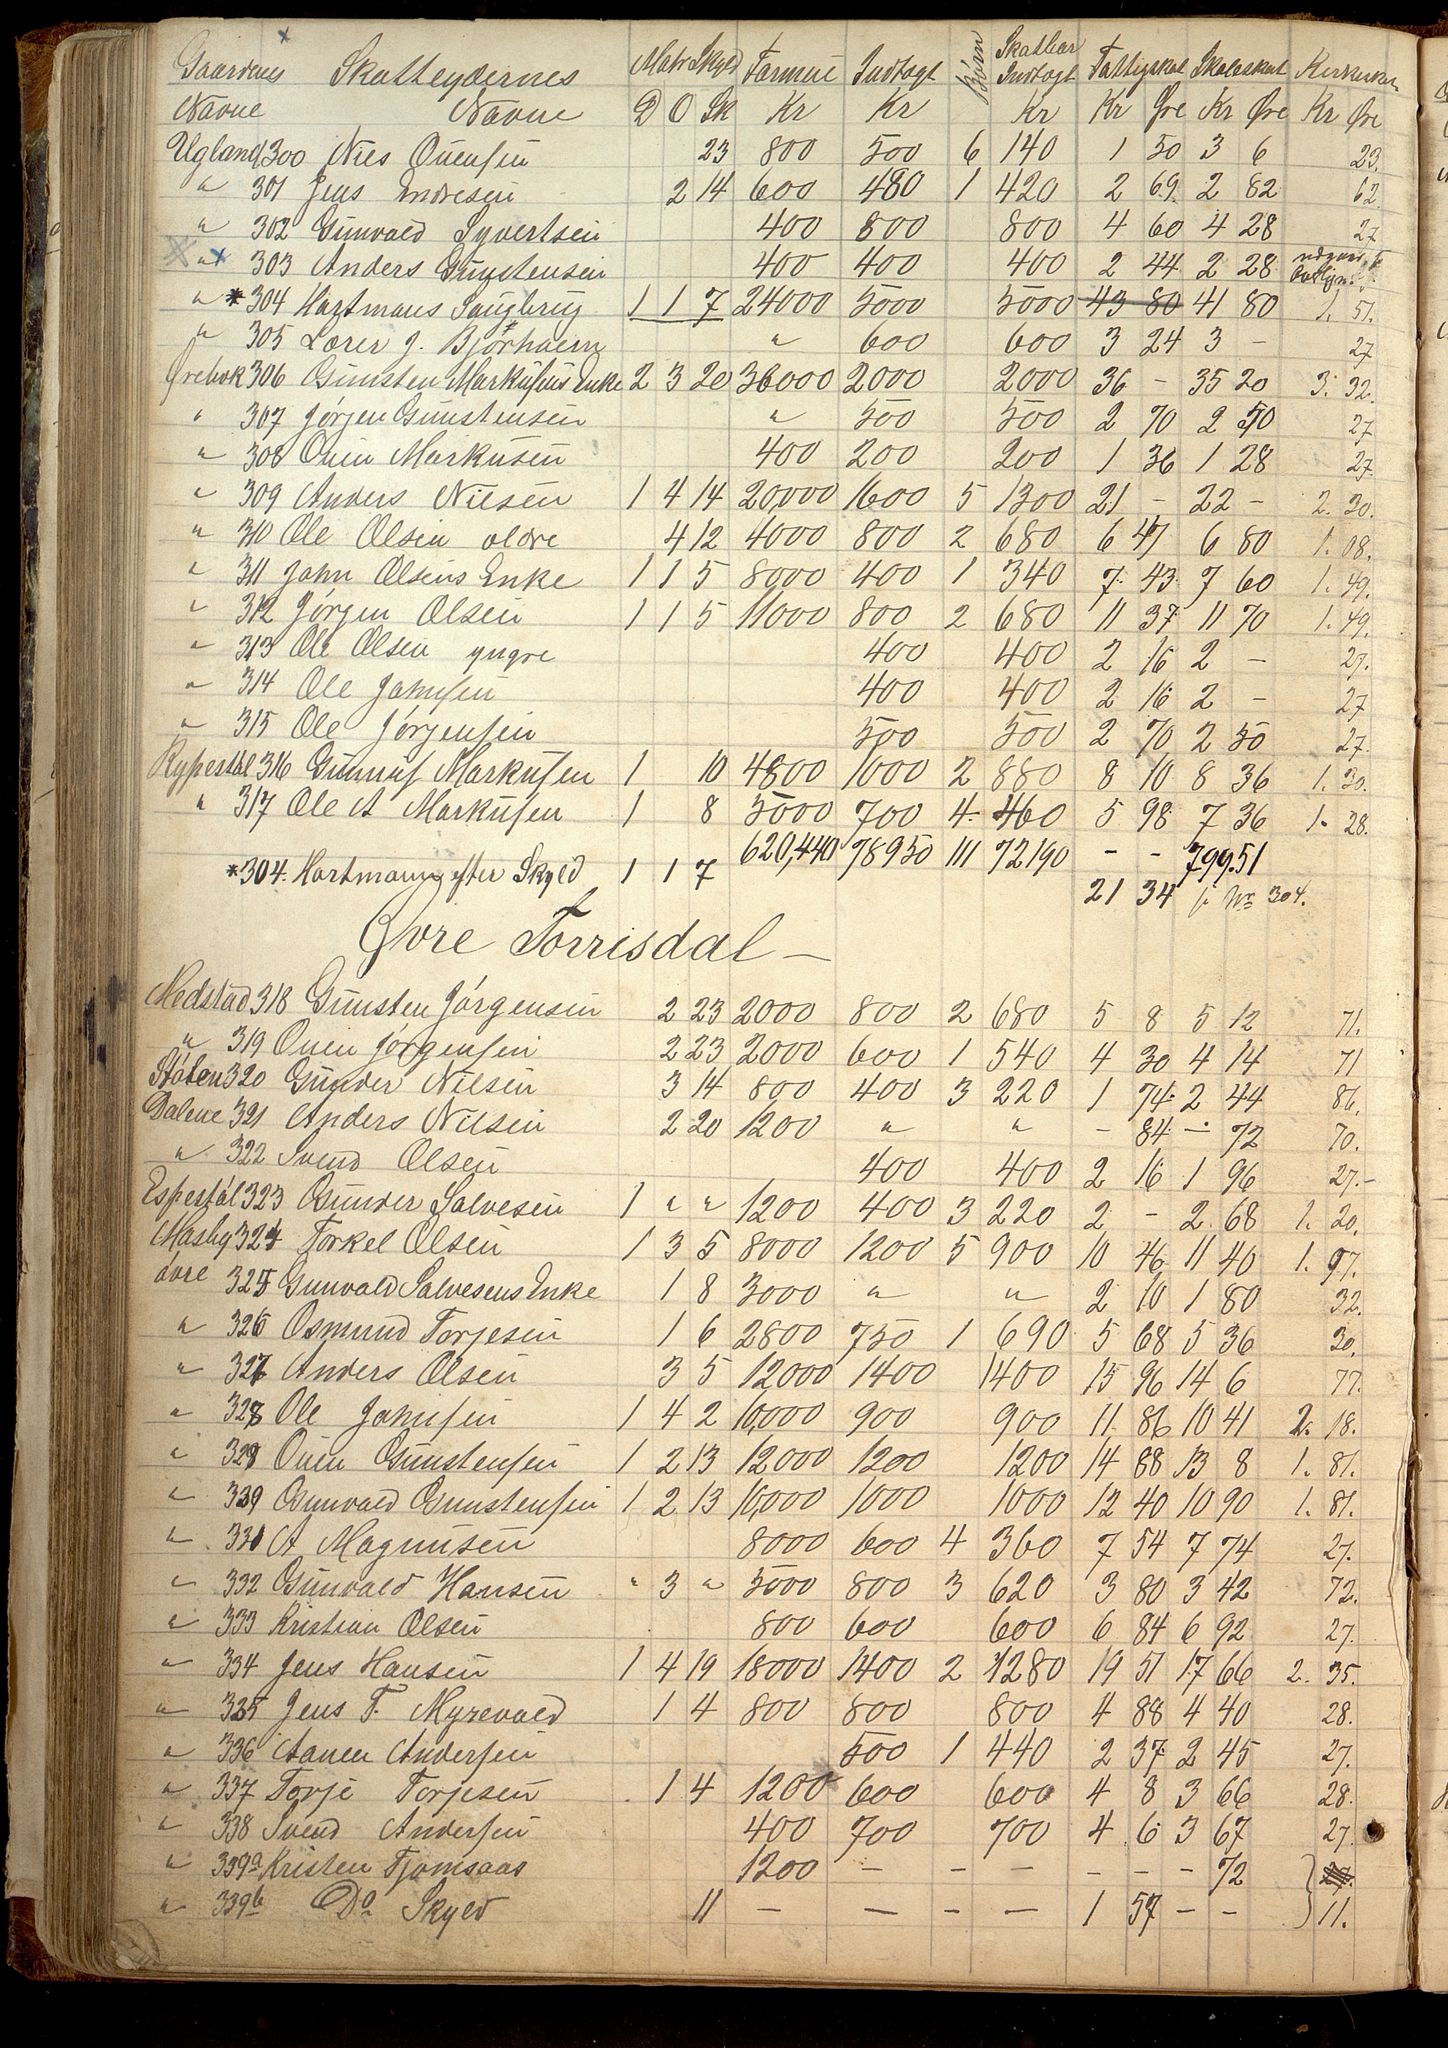 Gaardenes Skatteydernes Matr Skyld Formue Indtægt Børn Skatbar Indtægt Fattigskat Skoleskat Kirkeskat
Navne Navne D O Sk Kr Kr Kr Kr Øre Kr Øre Kr Øre
Ugland 300 Nils Ouensen 23 800 500 6 140 1 50 3 6 23.
" 301 Jens Endresen 2 14 600 480 1 420 2 69 2 82 62.
" 302 Gunvald Syvertsen 400 800 800 4 60 4 28 27
" 303 Anders Gunstensen 400 400 400 2 44 2 28
" *304 Hartmans Saugbrug 1 1 7 24000 5000 5000 43 80 41 80 1. 51.
" 305 Lærer J. Bjørhaern " 600 600 3 24 3 – 27
Ørebek 306 Gunsten Markusens Enke 2 3 20 36000 2000 2000 36 – 35 20 3. 32.
" 307 Jørgen Gunstensen " 500 500 2 70 2 50 27
" 308 Ouen Markusen 400 200 200 1 36 1 28 27
" 309 Anders Nilsen 1 4 14 20,000 1600 5 1300 21 – 22 – 2. 30.
" 310 Ole Olsen ældre 4 12 4000 800 2 680 6 47 6 80 1. 08.
" 311 John Olsens Enke 1 1 5 8000 400 1 340 7 43 7 60 1. 49.
" 312 Jørgen Olsen 1 1 5 11000 800 2 680 11 37 11 70 1. 49.
" 313 Ole Olsen yngre 400 400 2 16 2 – 27.
" 314 Ole Johnsen 400 400 2 16 2 – 27
" 315 Ole Jørgensen 500 500 2 70 2 50 27.
Rypestøl 316 Gunnuf Markusen 1 10 4800 1000 2 880 8 10 8 36 1. 30.
" 317 Ole A Markusen 1 8 5000 700 4 460 5 98 7 36 1. 28.
620,440 78950 111 72190 – – 799.51
*304. Hartmann efter Skyld 1 1 7 21 34 f. No 304.
Øvre Torrisdal –
Nedstad 318 Gunsten Jørgensen 2 23 2000 800 2 680 5 8 5 12 71.
" 319 Ouen Jørgensen 2 23 2000 600 1 540 4 30 4 14 71
Støten 320 Gunder Nilsen 3 14 800 400 3 220 1 74 2 44 86.
Dalene 321 Anders Nilsen 2 20 1200 " " – 84 – 72 70.
" 322 Svend Olsen 400 400 2 16 1 96 27.–
Espestøl 323 Gunder Salvesen 1 " " 1200 400 3 220 2 – 2 68 1. 20.
Mosby 324 Torkel Olsen 1 3 5 8000 1200 5 900 10 46 11 40 1. 97.
øvre 325 Gunvald Salvesens Enke 1 8 3000 " " 2 10 1 80 32.
" 326 Osmund Torjesen 1 6 2800 750 1 690 5 68 5 36 30.
" 327 Anders Olsen 3 5 12000 1400 1400 15 96 14 6 77.
" 328 Ole Johnsen 1 4 2 10,000 900 900 11 86 10 41 2. 18.
" 329 Ouen Gunstensen 1 2 13 12000 1200 1200 14 88 13 8 1. 81.
" 330 Gunvald Gunstensen 1 2 13 10,000 1000 1000 12 40 10 90 1. 81.
" 331 A Magnusen 8000 600 4 360 7 54 7 74 27.
" 332 Gunvald Hansen " 3 " 5000 800 3 620 3 80 3 42 72.
" 333 Kristian Olsen 800 600 600 6 84 6 92 27.
" 334 Jens Hansen 1 4 19 18000 1400 2 1280 19 51 17 66 2. 35.
" 335 Jens T. Myrevold 1 4 800 800 800 4 88 4 40 28.
" 336 Aanen Andersen 500 1 440 2 37 2 45 27.
" 337 Torje Torjesen 1 4 1200 600 600 4 8 3 66 28.
" 338 Svend Andersen 400 700 700 4 6 3 67 27.
" 339a Kristen Tjomsaas 1200 – – – – – – 72 27.
" 339b Do Skyld 11 – – – – 1 57 – – 11.